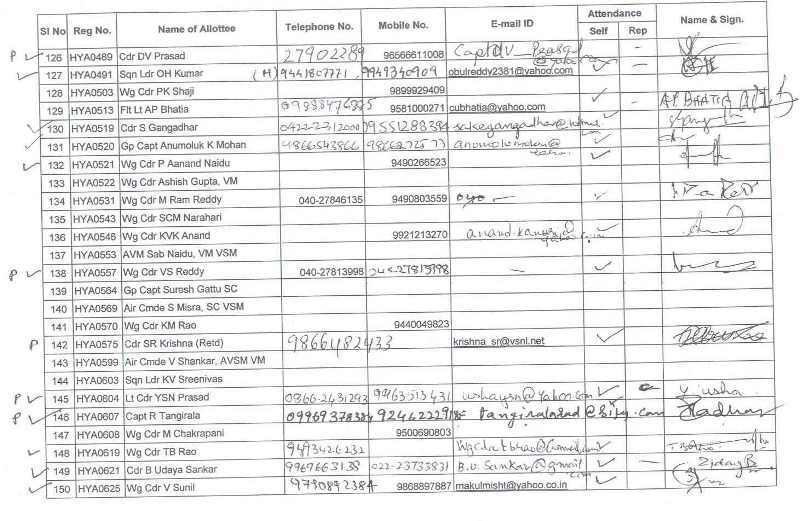 Sl No Reg No. Name of Allottee Telephone No. Mobile No. E-mail ID Attendance Name & Sign.
Self Rep
P 126 HYA0489 Cdr DV Prasad 27902289 96566611008
127 HYA0491 Sqn Ldr OH Kumar (M) 9441807771 9949340909 obulreddy2381@yahoo.com
128 HYA0503 Wg Cdr PK Shaji 9899929409
129 HYA0513 Flt Lt AP Bhatia 9581000271 cubhatia@yahoo.com AP BHATIA
130 HYA0519 Cdr S Gangadhar 0422-2312000 09551288384
131 HYA0520 Gp Capt Anumoluk K Mohan 9866543866
132 HYA0521 Wg Cdr P Aanand Naidu 9490266523
133 HYA0522 Wg Cdr Ashish Gupta, VM
134 HYA0531 Wg Cdr M Ram Reddy 040-27846135 9490803559
135 HYA0543 Wg Cdr SCM Narahari
136 HYA0546 Wg Cdr KVK Anand 9921213270
137 HYA0553 AVM Sab Naidu, VM VSM
P 138 HYA0557 Wg Cdr VS Reddy 040-27813998 —
139 HYA0564 Gp Capt Suresh Gattu SC
140 HYA0569 Air Cmde S Misra, SC VSM
141 HYA0570 Wg Cdr KM Rao 9440049823
P 142 HYA0575 Cdr SR Krishna (Retd) 9866482433 krishna_sr@vsnl.net
143 HYA0599 Air Cmde V Shankar, AVSM VM
144 HYA0603 Sqn Ldr KV Sreenivas
P 145 HYA0604 Lt Cdr YSN Prasad 0866-2431293 99163513431 ushaysn@yahoo.com Y. usha
P 146 HYA0607 Capt R Tangirala 09969378384
147 HYA0608 Wg Cdr M Chakrapani 9500690803
148 HYA0619 Wg Cdr TB Rao 9493426232
149 HYA0621 Cdr B Udaya Sankar 9967663138 022-23733831 B.U.Sankar@gmail.com
150 HYA0625 Wg Cdr V Sunil 9790892384 9868897887 makulmisht@yahoo.co.in